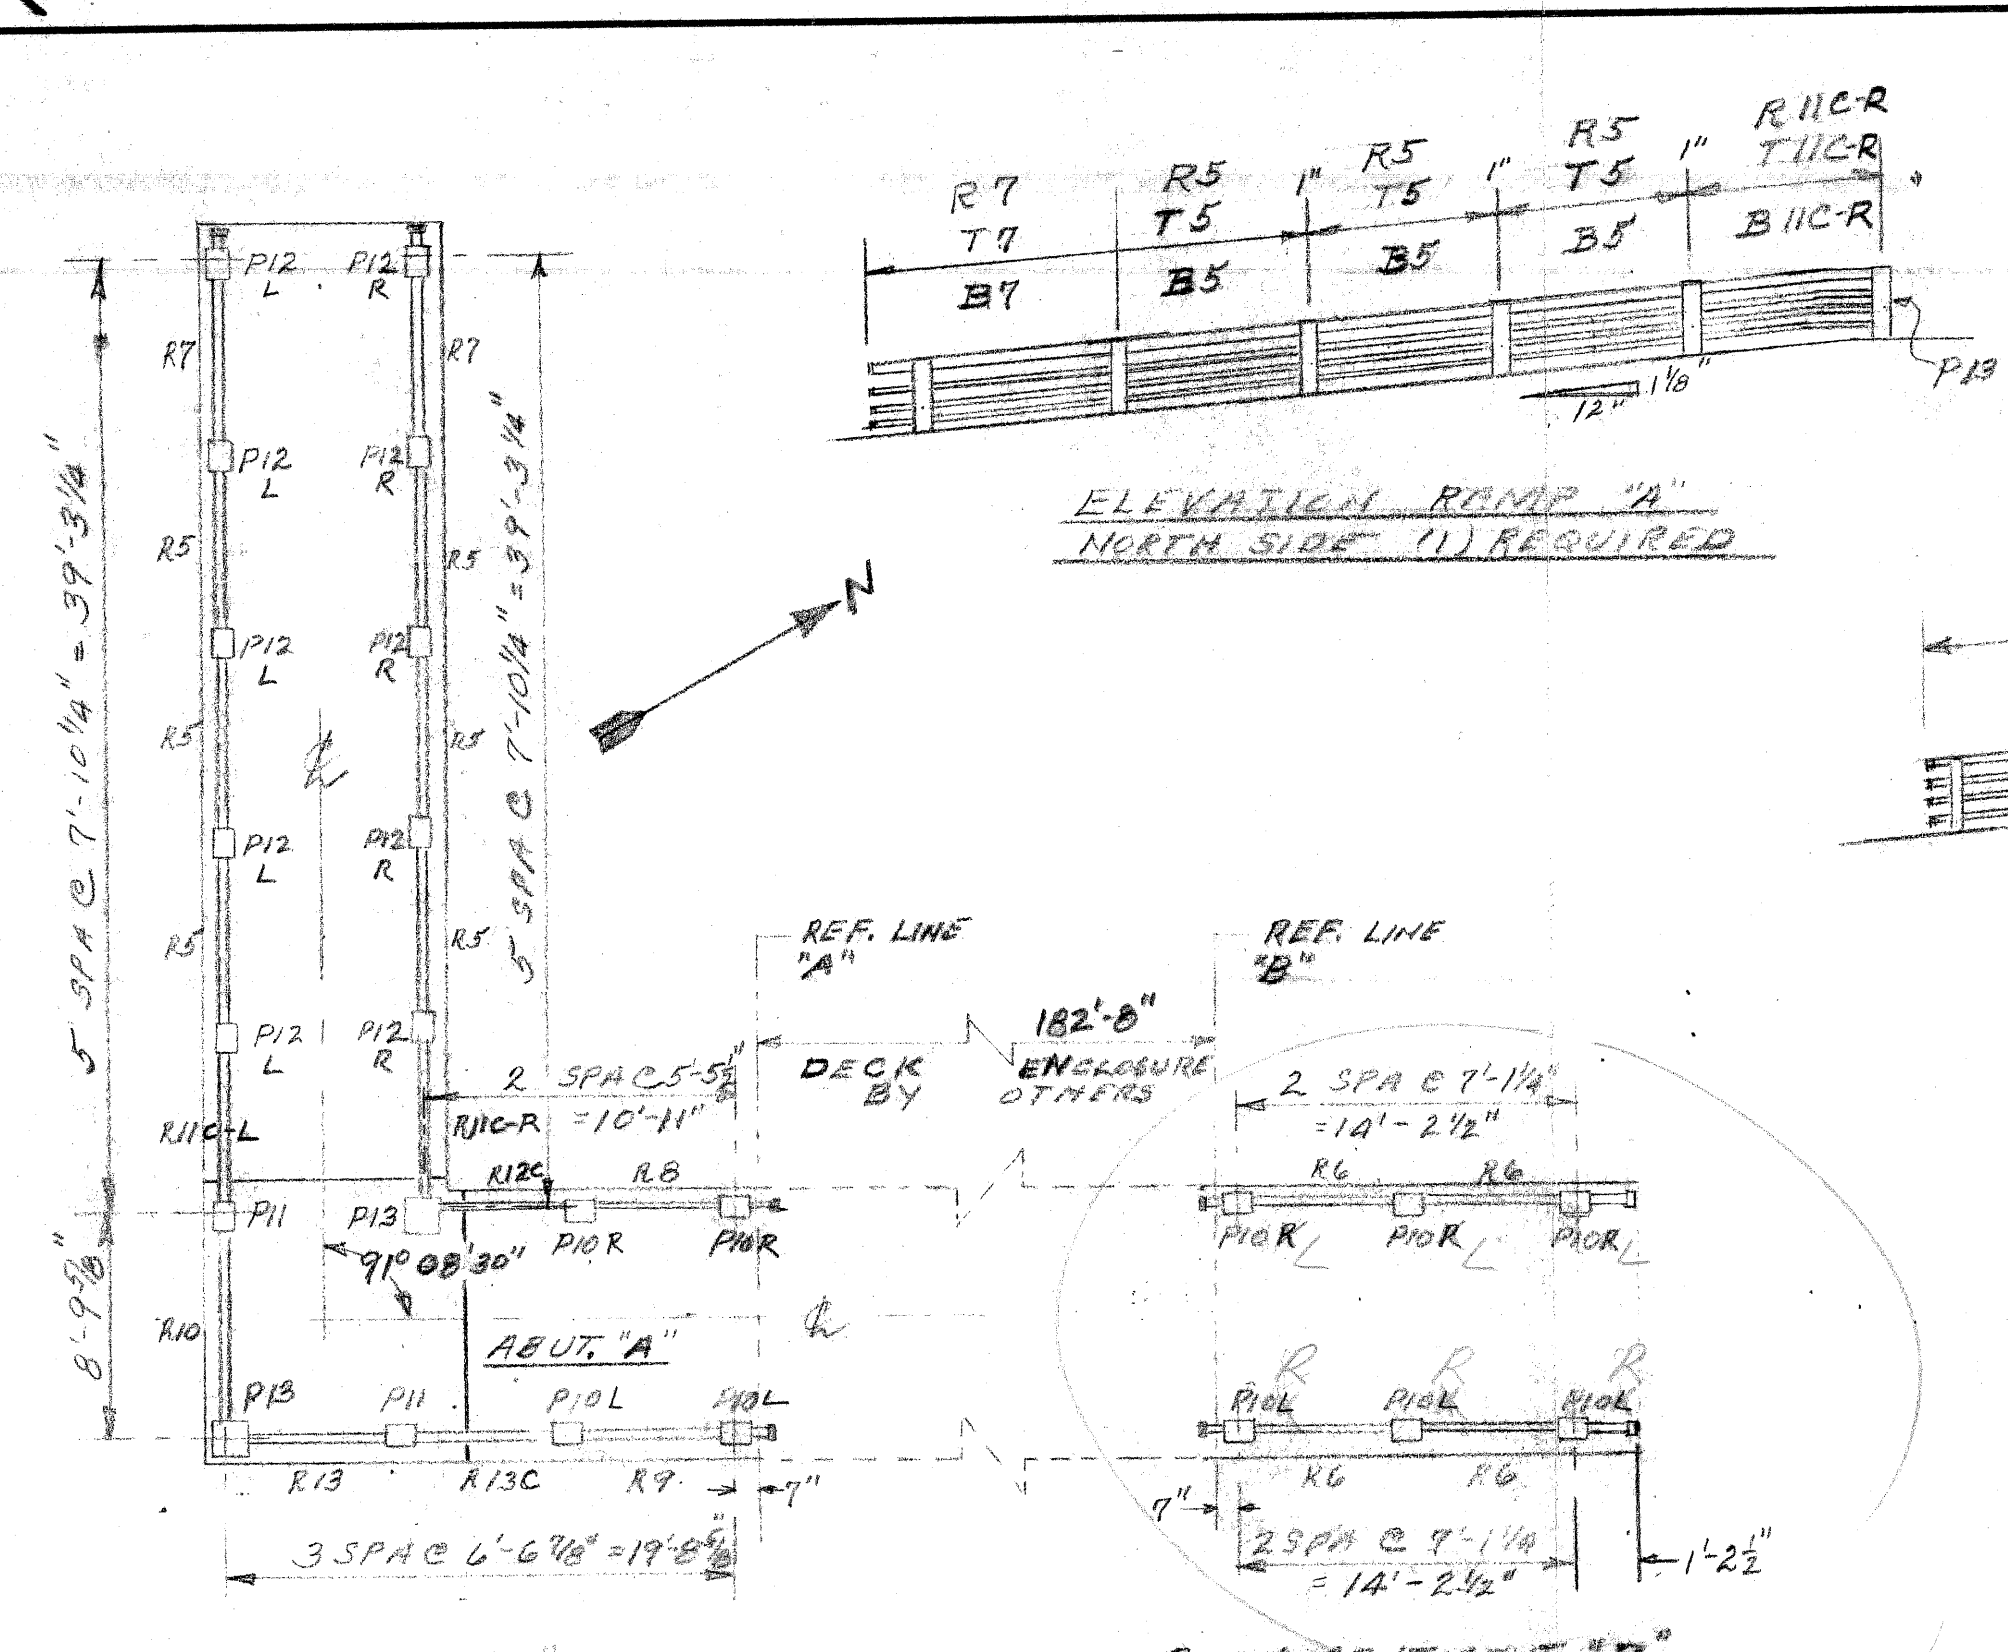 R 7
T 7
B7
R5
T 5
B5
1"
R5
T5
B5
1"
R5
T 5
B5
1"
R 11C-R
T 11C-R
B 11C-R
P13
12"
1 1/8"
ELEVATION RAMP "A"
NORTH SIDE (1) REQUIRED
N
P12
L
P12
R
R7
R7
P12
L
P12
R
R5
R5
P12
L
P12
R
R5
R5
P12
L
P12
R
R5
R5
P12
L
P12
R
5 SPA @ 7'-10 1/4" = 39'-3 1/4"
5 SPA @ 7'-10 1/4" = 39'-3 1/4"
℄
R11C-L
R11C-R
2 SPA @ 5'-5 1/2"
= 10'-11"
R12C
R8
P11
P13
P10R
P10R
91° 08' 30"
8'-9 5/8"
R10
ABUT. "A"
℄
P13
P11
P10L
P10L
R13
R13C
R9
7"
3 SPA @ 6'-6 7/8" = 19'-8 5/8"
REF. LINE
"A"
REF. LINE
"B"
182'-8"
DECK ENCLOSURE
BY OTHERS
2 SPA @ 7'-1 1/4"
= 14'-2 1/2"
R6
R6
P10R L
P10R L
P10R L
R
R
R
P10L
P10L
P10L
R6
R6
7"
2 SPA @ 7'-1 1/4
= 14'-2 1/2"
1'-2 1/2"